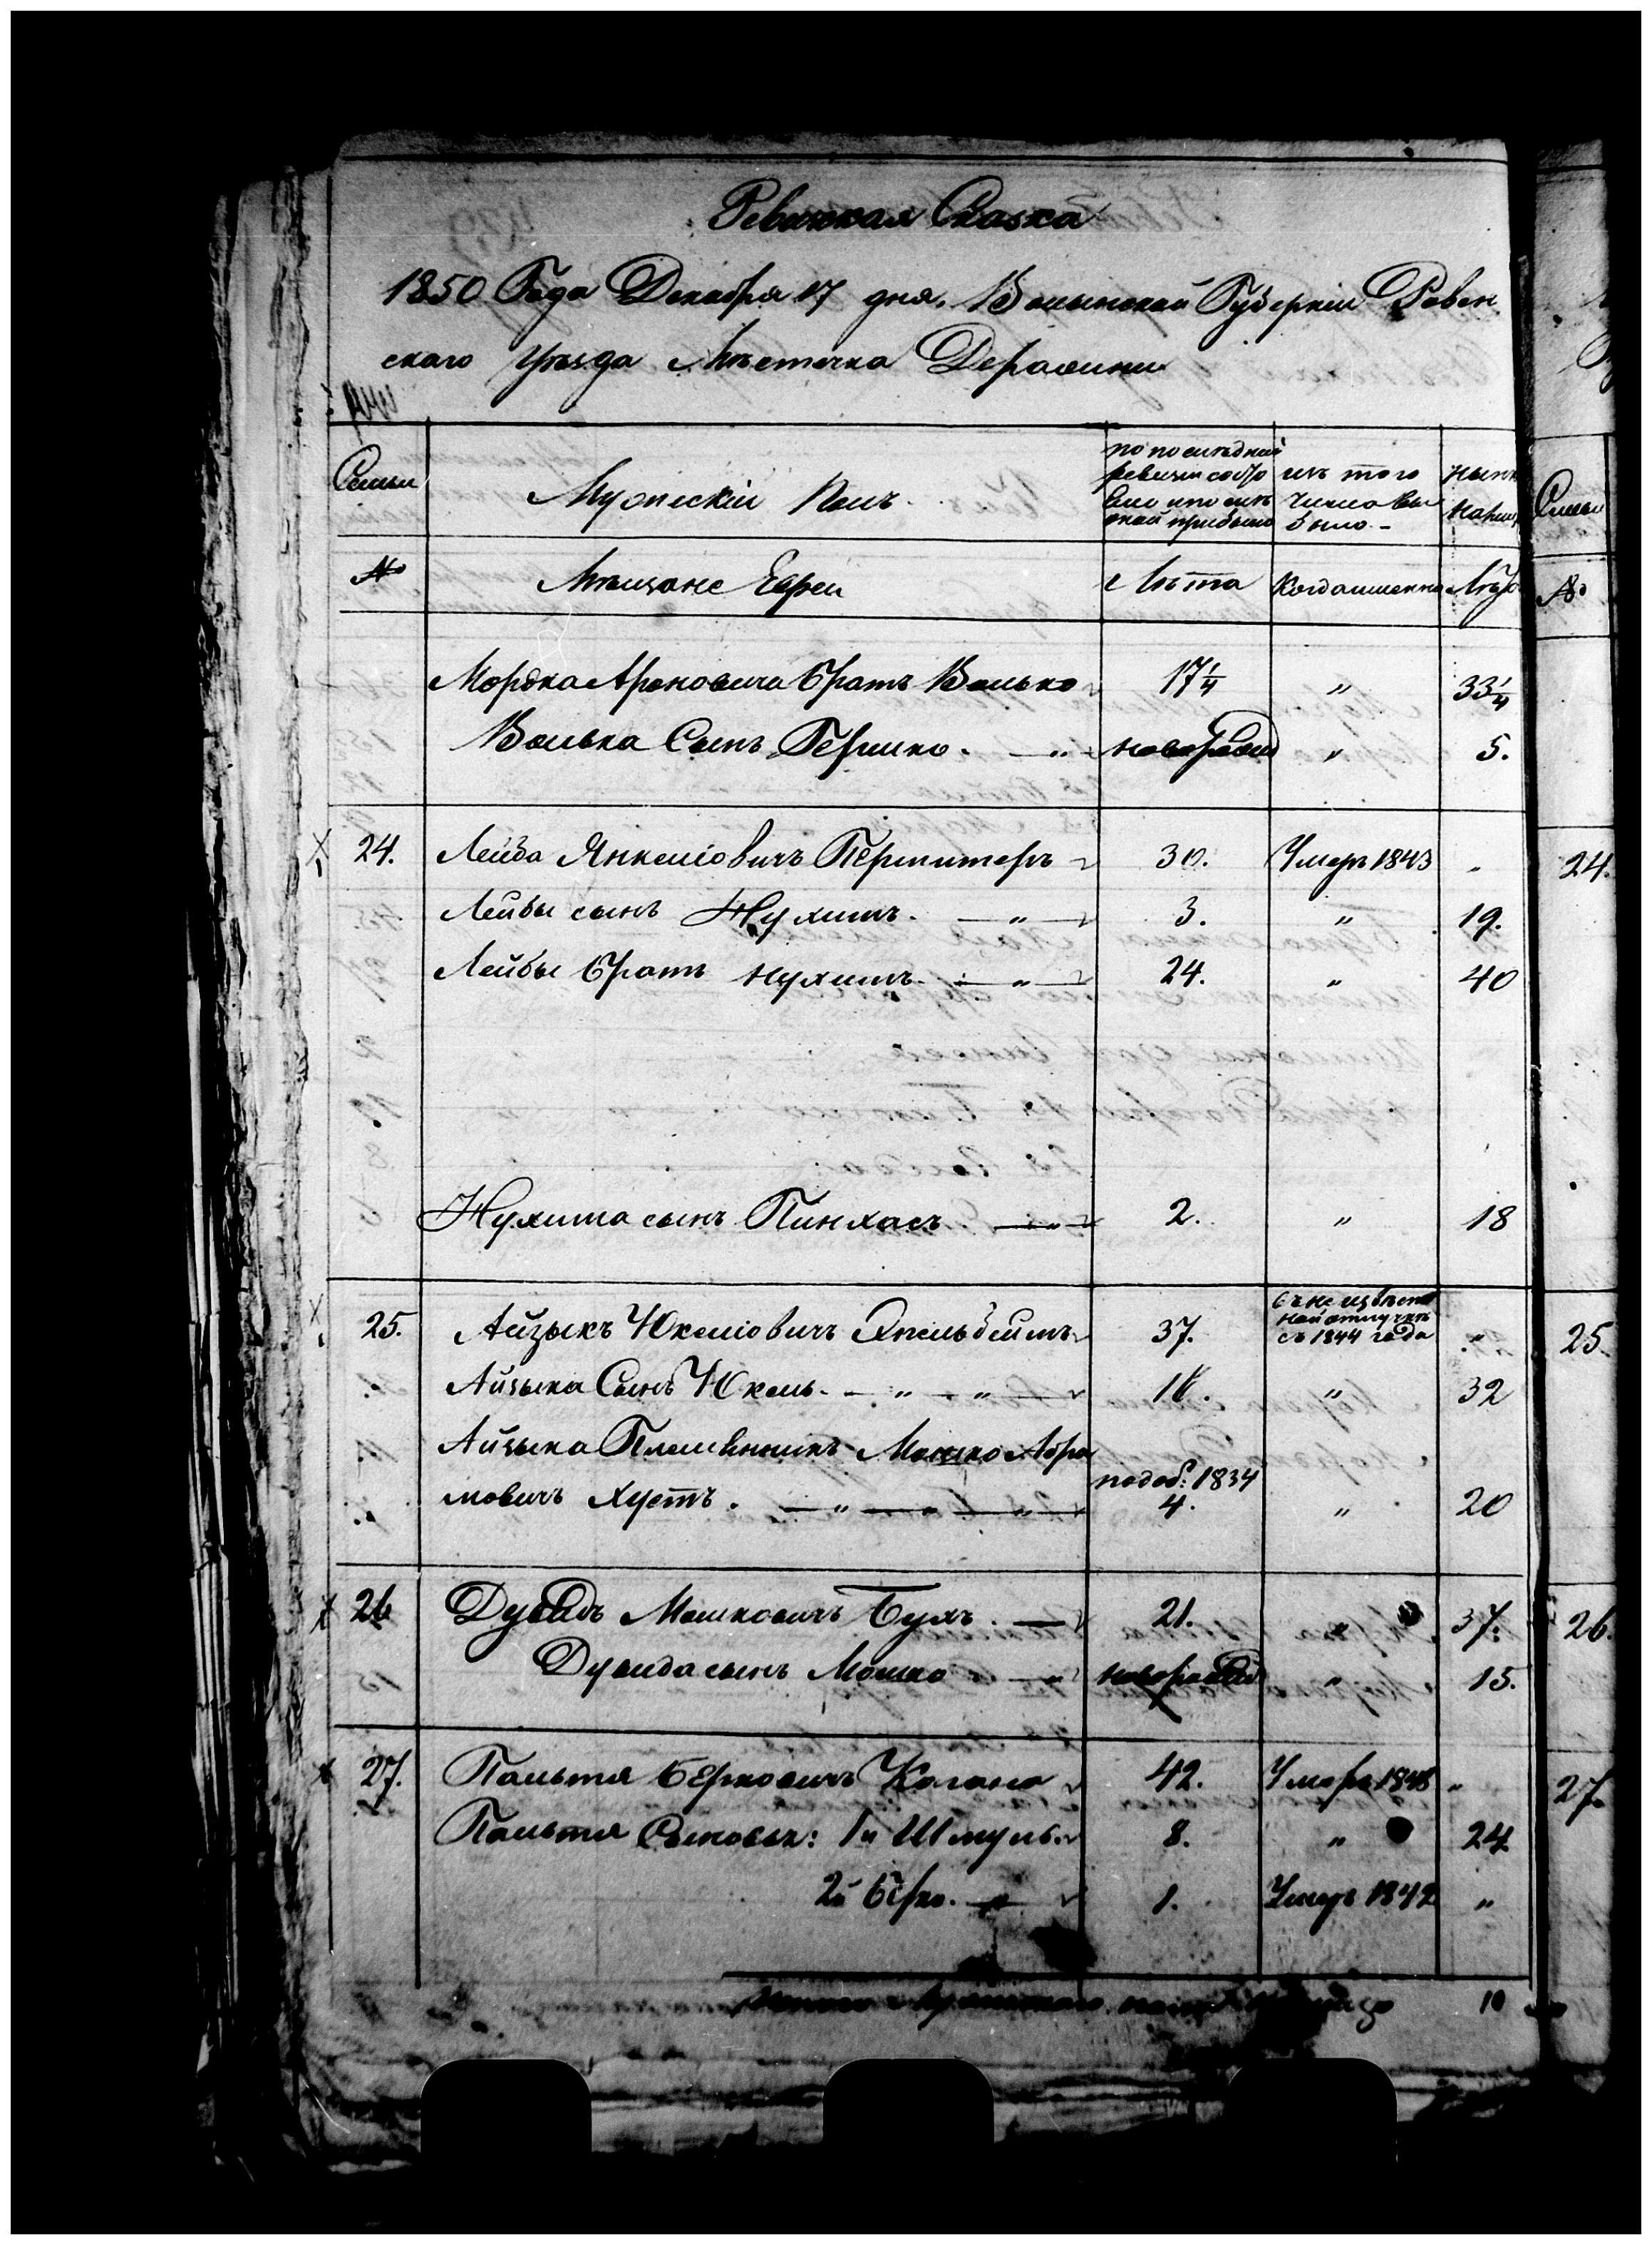 Ревизкая Сказка
1850 Года Декабря 17 дня. Волынской Губерніи Ровен
скаго уѣзда Мѣстечка Деражни
Семьи
Мужескій Полъ.
по послѣдней ревизіи состо
изъ того числа вы было.-
нынѣ
Семьи
№
Мѣщане Евреи
Лѣта
Когда именно
Лѣта
№
Мордка Ароновича братъ Волько
17¼
"
33¼
Волька Сынъ Гершко. — " —
новорожд
"
5.
24.
Лейба Янкеліовичъ
30.
Умеръ 1843
"
24.
Лейбы сынъ Нухимъ. — " —
3.
"
19.
Лейбы братъ Нухимъ. — " —
24.
"
40
Нухима сынъ Пинхасъ — " —
2.
"
18
25.
Айзыкъ Юкеліовичъ
37.
въ неизвѣст
ной отлучкѣ
съ 1844 года
"
25.
Айзыка Сынъ Юкель. — " — " —
16.
"
32
Айзыка Племянникъ Мошко Абра
мовичъ Хустъ. — " — " — " —
по доб: 1834
4.
"
20
26
Дувидъ Мошковичъ Бухъ. —
21.
"
37.
26.
Дувида сынъ Мошко — "
новорожд
"
15.
27.
Пальтя Берковичъ Когано
42.
Умеръ 1848
"
27.
Пальтя Сыновья: 1й Шмуль.
8.
"
24
2й Берко. — " —
1.
Умеръ 1842
"
10